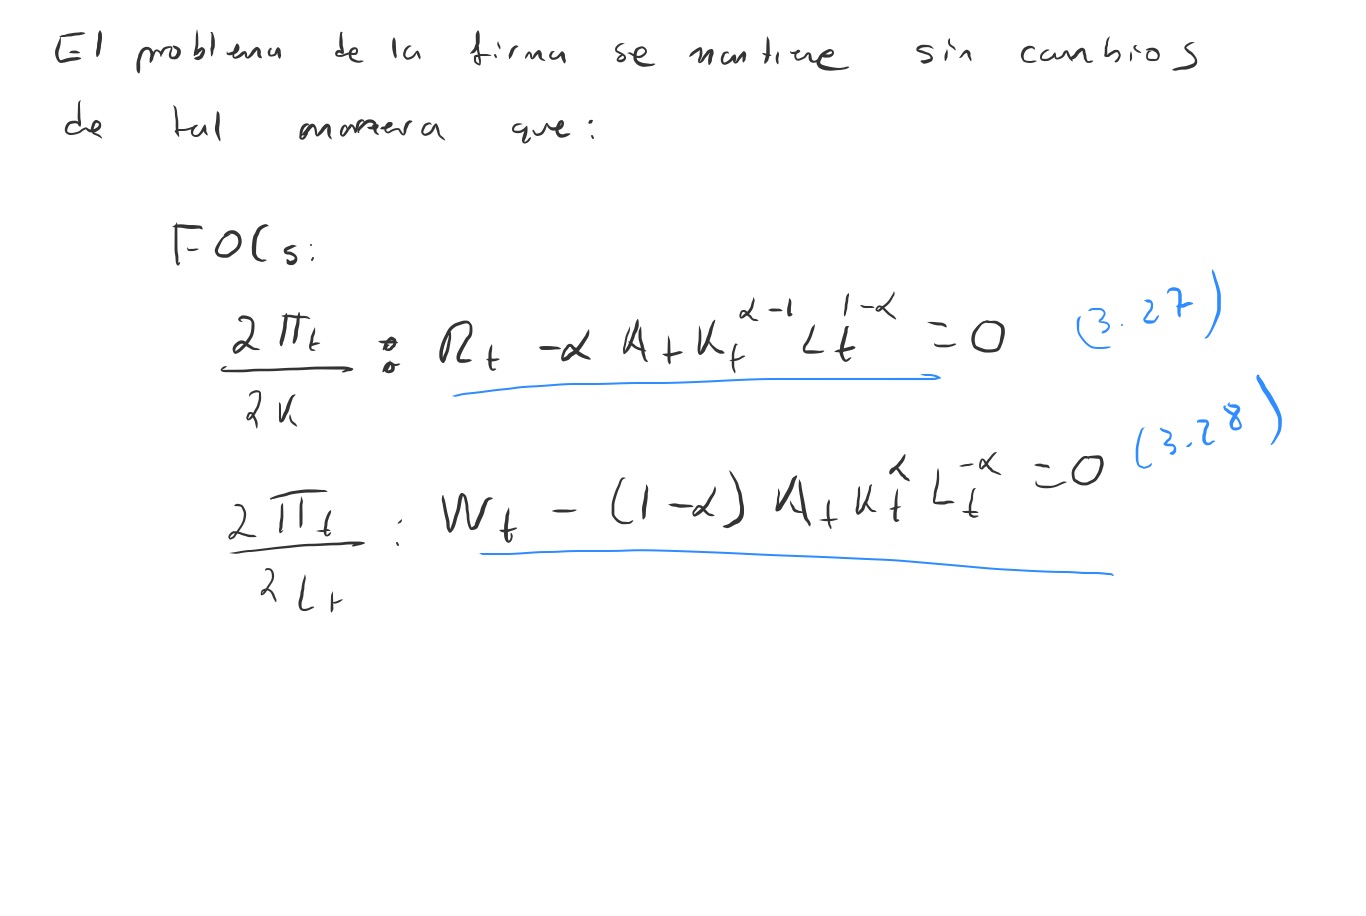 El problema de la firma se mantiene sin cambios
de tal manera que:
FOCs:
∂Π_t / ∂K : R_t - α A_t K_t^{α-1} L_t^{1-α} = 0 (3.27)
∂Π_t / ∂L_t : W_t - (1-α) A_t K_t^α L_t^{-α} = 0 (3.28)